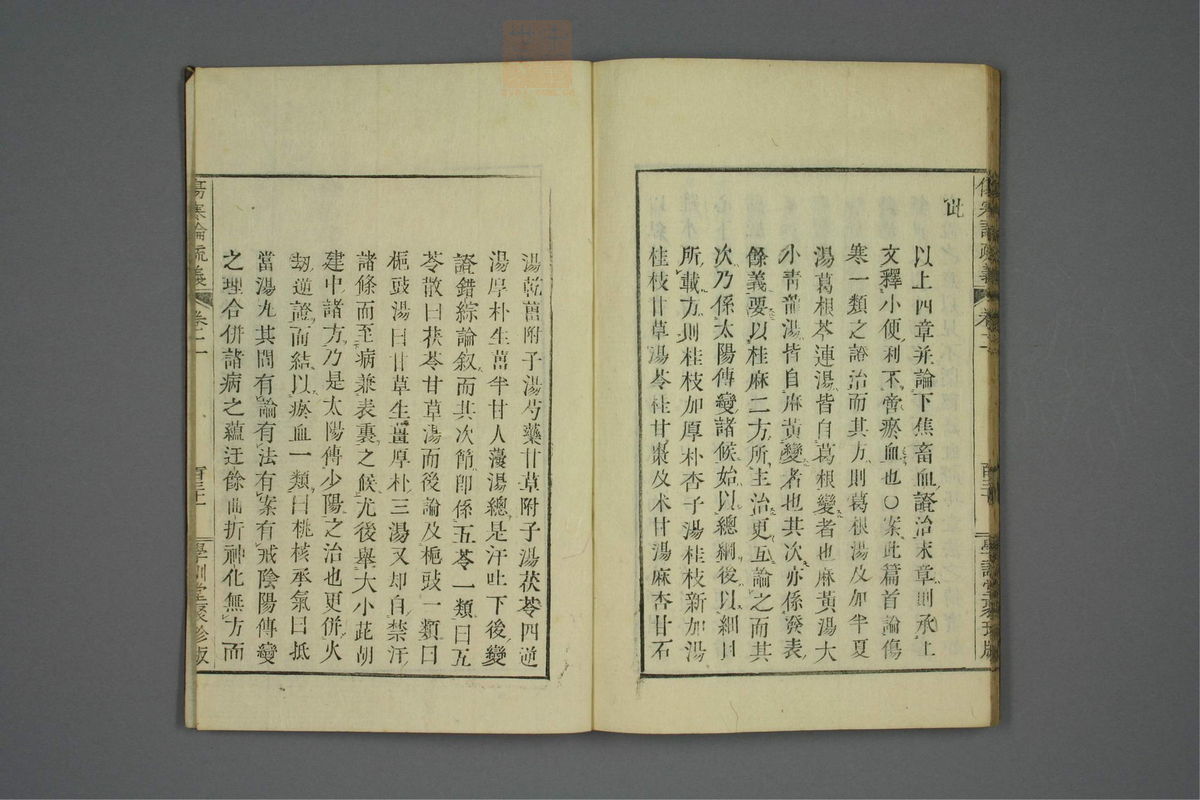 此
以上四章並論下焦畜血證治末章則承上
文釋小便利不啻瘀血也〇案此篇首論傷
寒一類之證治而其方則葛根湯及加半夏
湯葛根芩連湯皆自葛根變者也麻黃湯大
小青龍湯皆自麻黃變者也其次亦係發表
餘義要以桂麻二方所主治更互論之而其
次乃係太陽傳變諸候始以總綱後以細目
所載方則桂枝加厚朴杏子湯桂枝新加湯
桂枝甘草湯苓桂甘棗及朮甘湯麻杏甘石
湯乾薑附子湯芍藥甘草附子湯茯苓四逆
湯厚朴生薑半甘人薓湯總是汗吐下後變
證錯綜論敘而其次節卽係五苓一類曰五
苓散曰茯苓甘草湯而後論及梔豉一類曰
梔豉湯曰甘草生薑厚朴三湯又却自禁汗
諸條而至病兼表裏之候尤後舉大小茈胡
建中諸方乃是太陽傳少陽之治也更併火
劫逆證而結以瘀血一類曰桃核承氣曰抵
當湯丸其間有論有法有案有戒陰陽傳變
之理合併諸病之蘊迂餘曲折神化無方而
傷寒論疏義
卷二
學訓堂聚珍版